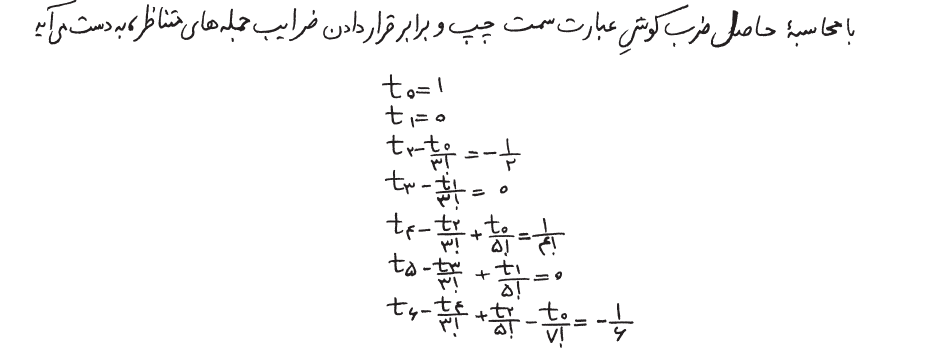 با محاسبهٔ حاصل ضرب کوشیِ عبارت سمت چپ و برابر قرار دادن ضرایب جمله‌های متناظر، به دست می‌آید
t₀ = ۱
t₁ = ۰
t₂ - t₀/۳! = -۱/۲
t₃ - t₁/۳! = ۰
t₄ - t₂/۳! + t₀/۵! = ۱/۴!
t₅ - t₃/۳! + t₁/۵! = ۰
t₆ - t₄/۳! + t₂/۵! - t₀/۷! = -۱/۶